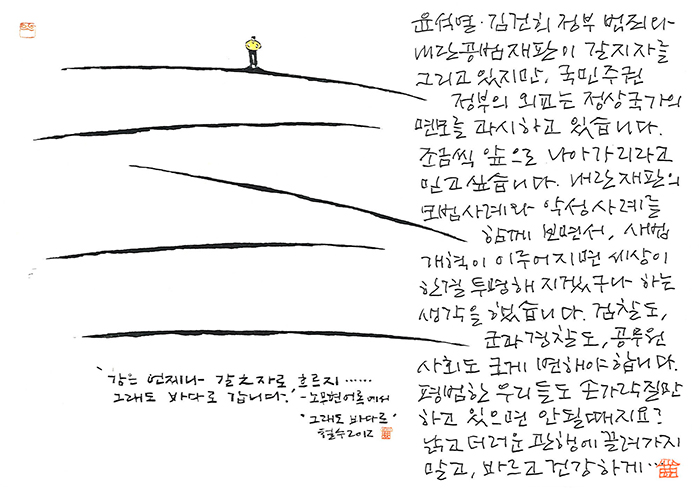 윤석열·김건희 정부 범죄와
내란공범재판이 갈지자를
그리고 있지만, 국민주권
정부의 외교는 정상국가의
면모를 과시하고 있습니다.
조금씩 앞으로 나아가리라고
믿고 싶습니다. 내란재판의
모범사례와 악성사례를
함께 보면서, 새법
개혁이 이루어지면 세상이
한결 투명해지겠구나 하는
생각을 했습니다. 검찰도,
군과 경찰도, 공무원
사회도 크게 변해야 합니다.
평범한 우리들도 손가락질만
하고 있으면 안될 때지요?
낡고 더러운 관행에 끌려가지
말고, 바르고 건강하게…
'강은 언제나 갈 之자로 흐르지……
그래도 바다로 갑니다.' -노무현어록에서
"그래도 바다로"
철수2012